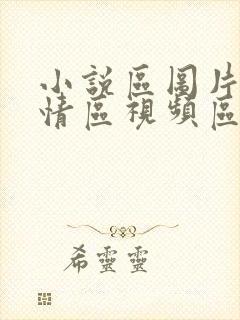 小說區圖片
情區視頻區
希靈靈